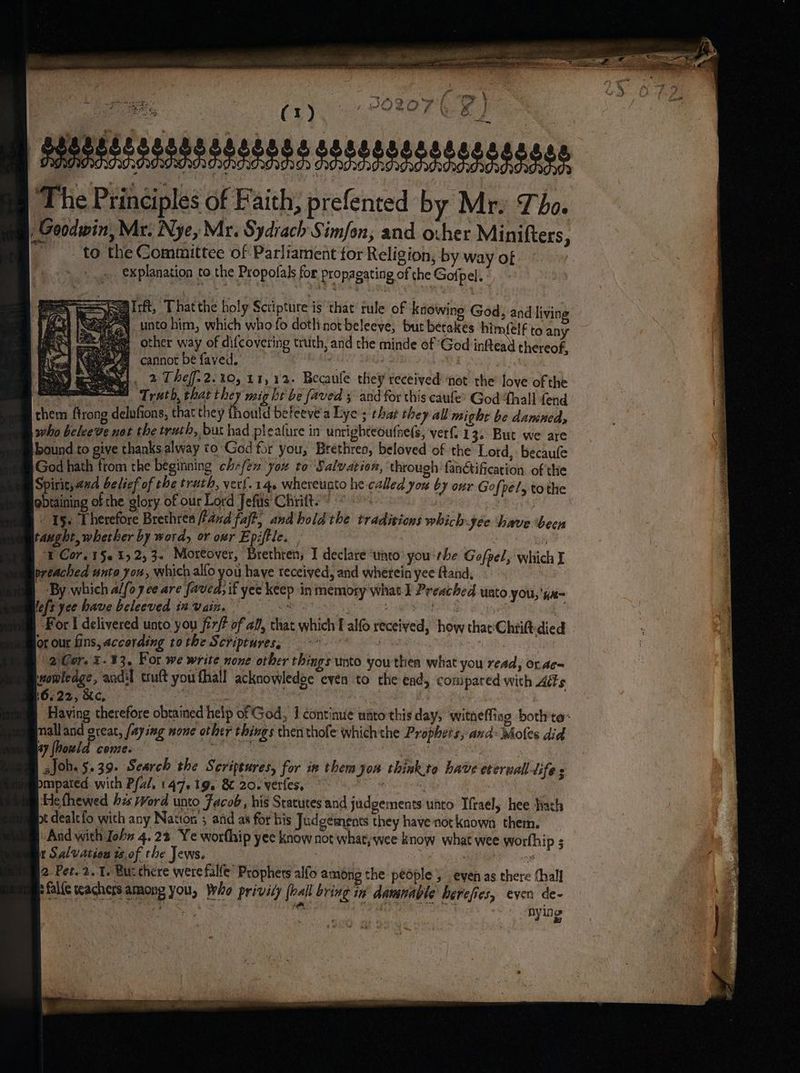 (1) 30207(8)
25 072
The Principles of Faith, preſented by Mr. Tho.
Goodwin, Mr. Nye, Mr. Sydrach Simſon, and other Miniſters,
to the Committee of Parliament for Religion, by way of
explanation to the Propoſals for propagating of the Goſpel.
Irſt, That the holy Scripture is that rule of knowing God, and living
unto him, which who ſo doth not beleeve, but betakes himſelf to any
other way of diſcovering truth, and the minde of God inſtead thereof,
cannot be ſaved.
2 Theſſ. 2. 10, 11, 12. Becauſe they received not the love of the
Truth, that they might be ſaved ; and for this cauſe God ſhall ſend
them ſtrong deluſions, that they ſhould beleeve a Lye ; that they all might be damned,
who beleeve not the truth, but had pleaſure in unrighteouſneſs, verſ. 13. But we are
bound to give thanks alway to God for you, Brethren, beloved of the Lord, becauſe
God hath from the beginning choſen you to Salvation, through ſanctification of the
Spirit, and belief of the truth, verſ. 14. whereunto he called you by our Goſpel, to the
obtaining of the glory of our Lord Jeſus Chriſt.
15. Therefore Brethren ſtand faſt, and hold the traditions which yee have been
taught, whether by word, or our Epiſtle.
1 Cor. 15. 1, 2, 3. Moreover, Brethren, I declare unto you the Goſpel, which I
preached unto you, which alſo you have received, and wherein yee ſtand.
By which alſo yee are ſaved, if yee keep in memory what I Preached unto you, un-
leſs yee have beleeved in vain.
For I delivered unto you firſt of all, that which I alſo received, how that Chriſt died
for our ſins, according to the Scriptures.
2 Cor. 1. 13. For we write none other things unto you then what you read, or ac-
knowledge, and I truſt you ſhall acknowledge even to the end, compared with Acts
26. 22, &c.
Having therefore obtained help of God, I continue unto this day, witneſſing both to
ſmall and great, ſaying none other things then thoſe which the Prophets, and Moſes did
ſay ſhould come.
Joh. 5. 39. Search the Scriptures, for in them you think to have eternall life ;
compared with Pſal. 147. 19. & 20. verſes.
He ſhewed his Word unto Jacob, his Statutes and judgements unto Iſrael, hee hath
not dealt ſo with any Nation ; and as for his Judgements they have not known them.
And with John 4. 22 Ye worſhip yee know not what, wee know what wee worſhip ;
for Salvation is of the Jews.
2 Pet. 2. 1. But there were falſe Prophets alſo among the people, even as there ſhall
be falſe teachers among you, who privily ſhall bring in damnable hereſies, even de-
nying